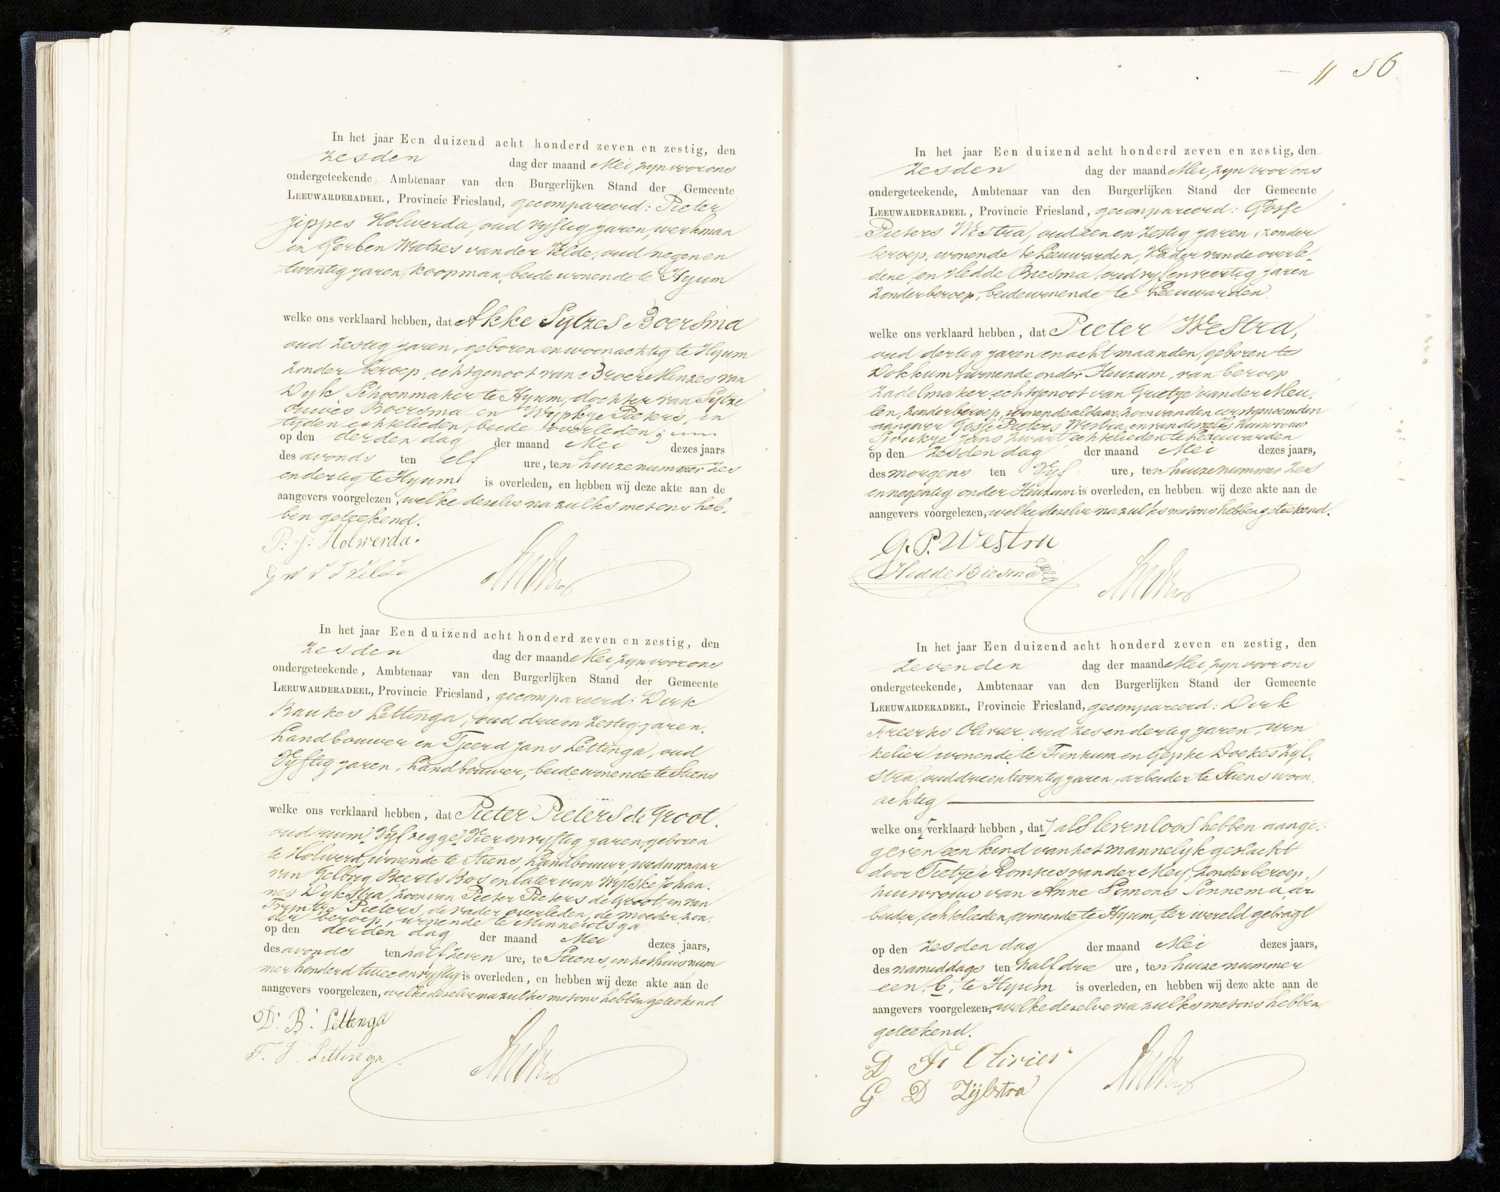 In het jaar Een duizend acht honderd zeven en zestig, den
zesden dag der maand Mei, zijn voor ons
ondergeteekende Ambtenaar van den Burgerlijken Stand der Gemeente
LEEUWARDERADEEL, Provincie Friesland, gecompareerd: Pieter
Jippes Holwerda, oud vijftig jaren, werkman
en Gerben Watzes van der Velde, oud negen en
twintig jaren, koopman, beide wonende te Hijum
welke ons verklaard hebben, dat Akke Sytzes Boersma
oud zestig jaren, geboren en woonachtig te Hijum
zonder beroep, echtgenoot van Broer Menzes van
Dijk, Schoenmaker te Hijum, dochter van Sytze
Douwes Boersma en Wypkje Pieters, in
tijden echtelieden, beide overleden;
op den derden dag der maand Mei dezes jaars
des avonds ten elf ure, ten huize nummer zes
en dertig te Hijum is overleden, en hebben wij deze akte aan de
aangevers voorgelezen, welke dezelve nazulks met ons heb-
ben geteekend.
P. J. Holwerda.
G W V D Velde
In het jaar Een duizend acht honderd zeven en zestig, den
zesden dag der maand Mei, zijn voor ons
ondergeteekende, Ambtenaar van den Burgerlijken Stand der Gemeente
LEEUWARDERADEEL, Provincie Friesland, gecompareerd: Dirk
Baukes Lettinga, oud drie en zestig jaren,
Landbouwer en Tjeerd Jans Lettinga, oud
Vijftig jaren, Landbouwer, beide wonende te Stiens
welke ons verklaard hebben, dat Pieter Pieters de Groot,
oud ruim Vijf zegge Vier en vijftig jaren, geboren
te Holwerd, wonende te Stiens, Landbouwer, weduwnaar
van Beerts Bos en later van Wytske Johan-
nes Dijkstra, zoon van Pieter Pieters de Groot, en van
Tryntje Pieters, de vader overleden, de moeder zon-
der beroep, wonende te Minnertsga
op den derden dag der maand Mei dezes jaars,
des avonds ten half zeven ure, te Stiens, in het huis num-
mer honderd twee en vijftig is overleden, en hebben wij deze akte aan de
aangevers voorgelezen, welke dezelve nazulks met ons hebben geteekend
D. B. Lettinga
T. J. Lettinga
11 56
In het jaar Een duizend acht honderd zeven en zestig, den
zesden dag der maand Mei, zijn voor ons
ondergeteekende, Ambtenaar van den Burgerlijken Stand der Gemeente
LEEUWARDERADEEL, Provincie Friesland, gecompareerd: Gosse
Pieters Westra, oud een en zestig jaren, zonder
beroep, wonende te Leeuwarden, Vader van de overle-
dene, en Hedde Biesma, oud vijf en veertig jaren
zonder beroep, beide wonende te Leeuwarden
welke ons verklaard hebben, dat Pieter Westra,
oud dertig jaren en acht maanden, geboren te
Dokkum, wonende onder Huizum, van beroep
zadelmaker, echtgenoot van Grietje van der Meu-
len, zonder beroep, wonende aldaar, zoon van den eerstgenoemden
aangever Gosse Pieters Westra, en van deszelfs huisvrouw
Jans Zwart echtelieden te Leeuwarden
op den zesden dag der maand Mei dezes jaars,
des morgens ten Vijf ure, ten huize nummer zes
en negentig onder Huizum is overleden, en hebben wij deze akte aan de
aangevers voorgelezen, welke dezelve nazulks met ons hebben geteekend.
G. P. Westra
Hedde Biesma
In het jaar Een duizend acht honderd zeven en zestig, den
zevenden dag der maand Mei, zijn voor ons
ondergeteekende, Ambtenaar van den Burgerlijken Stand der Gemeente
LEEUWARDERADEEL, Provincie Friesland, gecompareerd: Dirk
Freerks Olivier oud zes en dertig jaren, win
kelier wonende te Finkum en Gepke Doekes Zijl-
stra, oud drie en twintig jaren, arbeider te Stiens woon-
achtig
welke ons verklaard hebben, dat als levenloos hebben aange-
geven een kind van het mannelijk geslacht
door Tietje Romkes van der Meij, zonder beroep,
huisvrouw van Anne Simons Sinnema, ar-
beider, echtelieden, wonende te Hijum, ter wereld gebragt
op den zesden dag der maand Mei dezes jaars,
des namiddags ten half drie ure, ten huize nummer
een, C, te Hijum is overleden, en hebben wij deze akte aan de
aangevers voorgelezen, welke dezelve nazulks met ons hebben
geteekend.
D Fr Olivier
G D Zijlstra